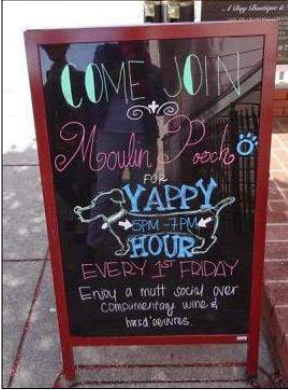 A Dog Boutique &
COME JOIN
Moulin Pooch
FOR
YAPPY
5PM-7PM
HOUR
EVERY 1ST FRIDAY
Enjoy a mutt social over
complimentary wine &
hors d'oeuvres.